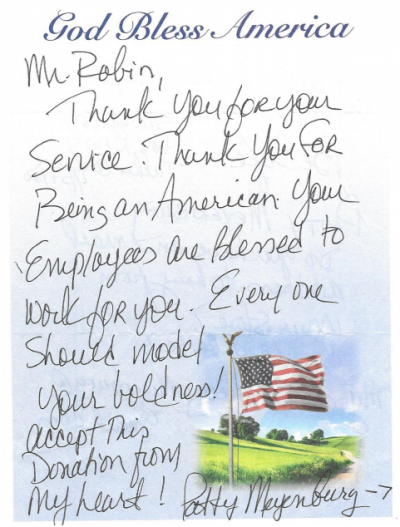 God Bless America
Mr. Robin,
Thank you for your
Service. Thank you for
Being an American. Your
Employees are Blessed to
work for you. Every one
Should model
your boldness!
accept This
Donation from
My heart! Patty Meyenburg →